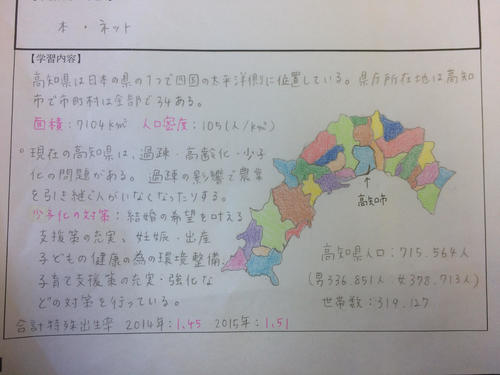 本・ネット
【学習内容】
高知県は日本の県の1つで四国の太平洋側に位置している。県庁所在地は高知
市で市町村は全部で34ある。
面積:7104km² 人口密度:105(人/km²)
○現在の高知県は、過疎・高齢化・少子
化の問題がある。過疎の影響で農業
を引き継ぐ人がいなくなったりする。
少子化の対策:結婚の希望を叶える
支援策の充実、妊娠・出産
子どもの健康の為の環境整備、
子育て支援策の充実・強化な
どの対策を行っている。
合計特殊出生率 2014年:1.45 2015年:1.51
高知市
高知県人口:715.564人
(男336.851人 女378.713人)
世帯数:319.127